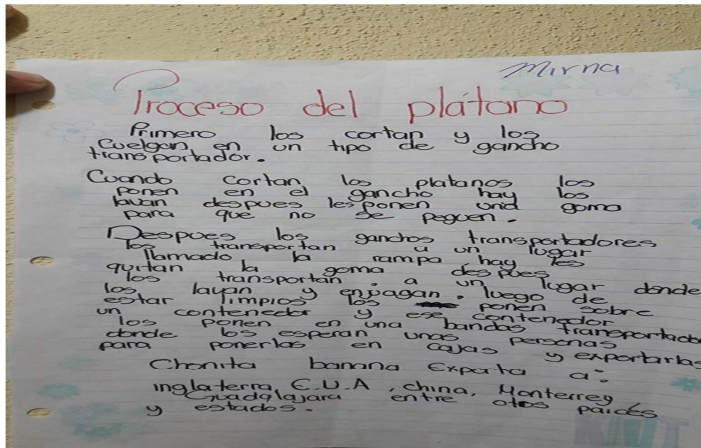 Mirna
Proceso del plátano
Primero los cortan y los
Cuelgan en un tipo de gancho
transportador.
Cuando cortan los platanos los
ponen en el gancho hay los
lavan despues les ponen una goma
para que no se peguen.
Despues los ganchos transportadores
los transportan a un lugar
llamado la rampa hay les
quitan la goma des pues
los transportan. a un lugar donde
los lavan y enjuagan. luego de
estar limpios los ponen sobre
un contenedor y ese contenedor
los ponen en una bandas transportado
donde los esperan unas personas
para ponerlas en cajas y exportarlas
Chonita banana Exporta a:
inglaterra, E.U.A, china, Monterrey
Guadalajara entre otos paides
y estados.